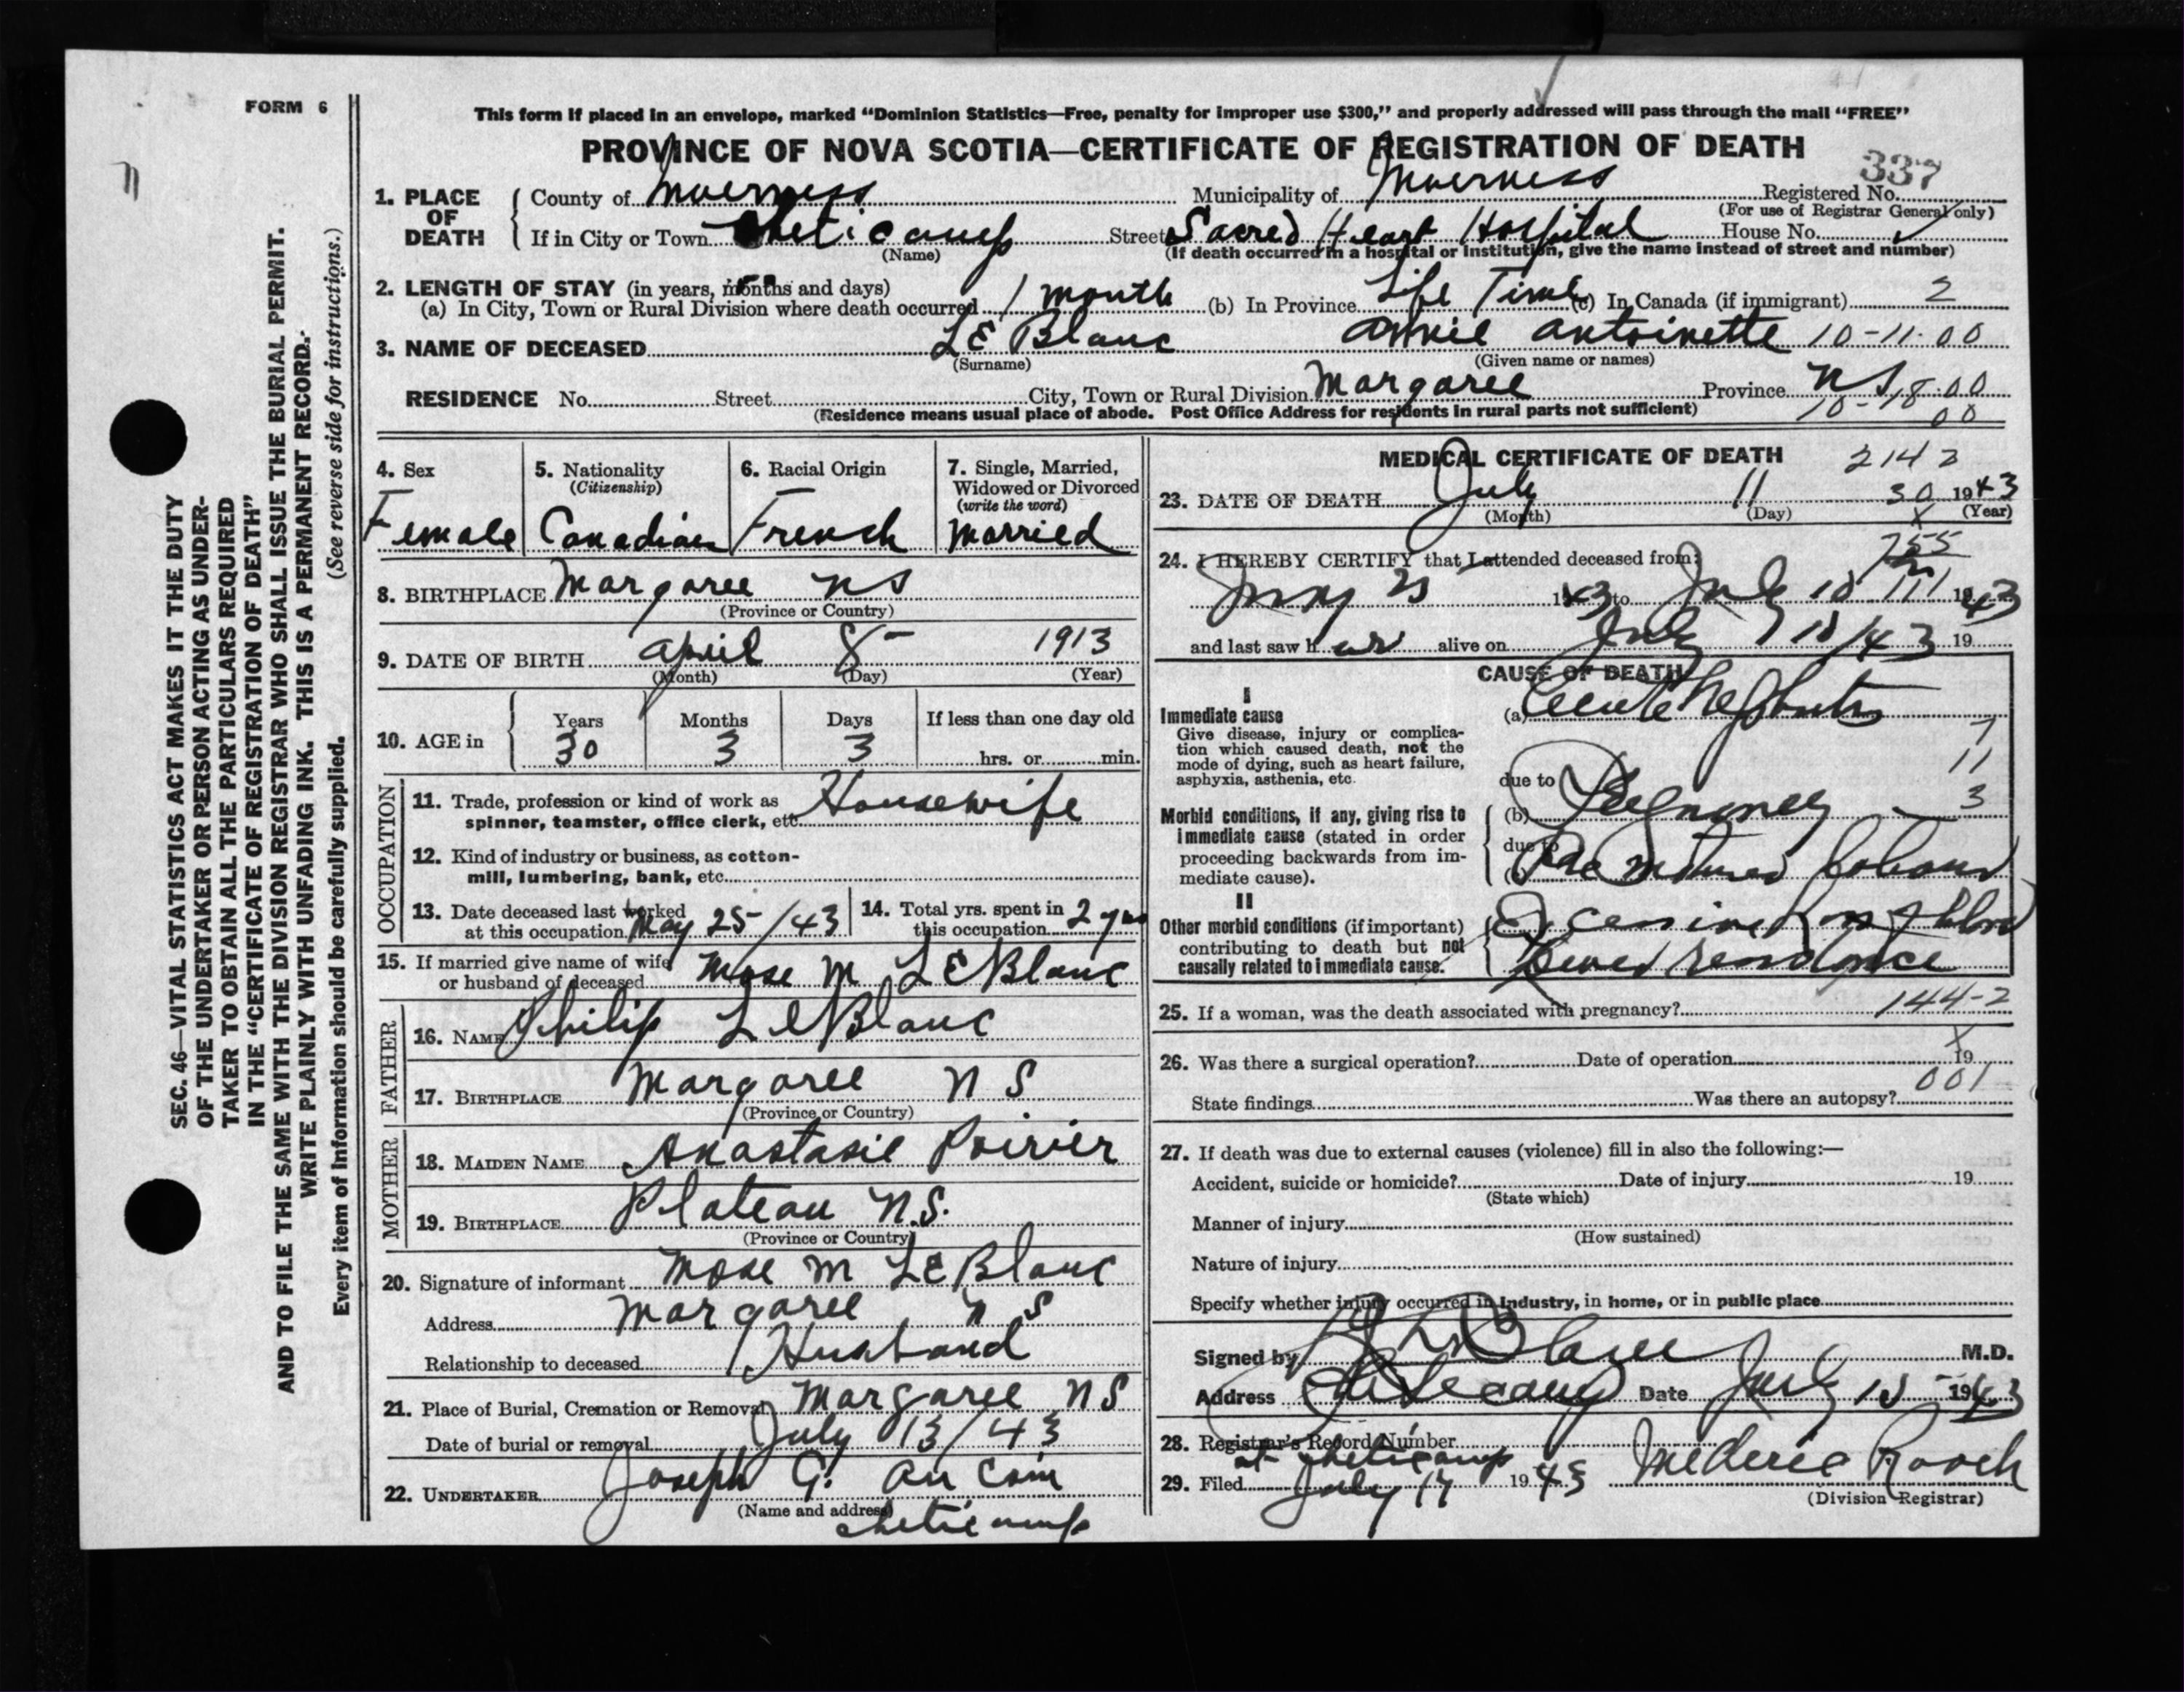 FORM 6
This form if placed in an envelope, marked “Dominion Statistics—Free, penalty for improper use $300,” and properly addressed will pass through the mail “FREE”
PROVINCE OF NOVA SCOTIA—CERTIFICATE OF REGISTRATION OF DEATH
337
1. PLACE OF DEATH County of Inverness Municipality of Inverness Registered No.
(For use of Registrar General only)
If in City or Town Cheticamp Street Sacred Heart Hospital House No.
(Name) (If death occurred in a hospital or institution, give the name instead of street and number)
2. LENGTH OF STAY (in years, months and days)
(a) In City, Town or Rural Division where death occurred 1 month (b) In Province Life Time (c) In Canada (if immigrant) 2
3. NAME OF DECEASED LE Blanc Annie Antoinette 10-11-00
(Surname) (Given name or names)
RESIDENCE No. Street City, Town or Rural Division Margaree Province NS
10-18-00
00
(Residence means usual place of abode. Post Office Address for residents in rural parts not sufficient)
4. Sex Female
5. Nationality (Citizenship) Canadian
6. Racial Origin French
7. Single, Married, Widowed or Divorced (write the word) Married
8. BIRTHPLACE Margaree NS
(Province or Country)
9. DATE OF BIRTH April 8 1913
(Month) (Day) (Year)
10. AGE in Years 30 Months 3 Days 3 If less than one day old hrs. or min.
OCCUPATION
11. Trade, profession or kind of work as spinner, teamster, office clerk, etc. Housewife
12. Kind of industry or business, as cotton-mill, lumbering, bank, etc.
13. Date deceased last worked at this occupation May 25/43
14. Total yrs. spent in this occupation 2 yrs
15. If married give name of wife or husband of deceased Mose M LE Blanc
FATHER
16. NAME Philip LeBlanc
17. BIRTHPLACE Margaree N S
(Province or Country)
MOTHER
18. MAIDEN NAME Anastasie Poirier
19. BIRTHPLACE Plateau N.S.
(Province or Country)
20. Signature of informant Mose M LE Blanc
Address Margaree N S
Relationship to deceased Husband
21. Place of Burial, Cremation or Removal Margaree NS
Date of burial or removal July 13/43
22. UNDERTAKER Joseph G. Au Coin
(Name and address) Cheticamp
MEDICAL CERTIFICATE OF DEATH 2142
23. DATE OF DEATH July 11 30 1943
(Month) (Day) (Year)
X
755
24. I HEREBY CERTIFY that I attended deceased from:
1943 to July 1943
and last saw her alive on July 43 19
CAUSE OF DEATH
I
Immediate cause
Give disease, injury or complication which caused death, not the mode of dying, such as heart failure, asphyxia, asthenia, etc.
(a) Acute Nephritis
7
11
3
due to
(b) Pregnancy
due to
Morbid conditions, if any, giving rise to immediate cause (stated in order proceeding backwards from immediate cause).
II
Other morbid conditions (if important) contributing to death but not causally related to immediate cause.
Excessive loss of blood
25. If a woman, was the death associated with pregnancy? 144-2
26. Was there a surgical operation? Date of operation 19
X
001
State findings Was there an autopsy?
27. If death was due to external causes (violence) fill in also the following:—
Accident, suicide or homicide? Date of injury 19
(State which)
Manner of injury
(How sustained)
Nature of injury
Specify whether injury occurred in industry, in home, or in public place
Signed by M.D.
Address Cheticamp Date July 1943
28. Registrar's Record Number
at Cheticamp
29. Filed July 17 1943 Mederic Roach
(Division Registrar)
SEC. 46—VITAL STATISTICS ACT MAKES IT THE DUTY
OF THE UNDERTAKER OR PERSON ACTING AS UNDER-
TAKER TO OBTAIN ALL THE PARTICULARS REQUIRED
IN THE “CERTIFICATE OF REGISTRATION OF DEATH”
AND TO FILE THE SAME WITH THE DIVISION REGISTRAR WHO SHALL ISSUE THE BURIAL PERMIT.
WRITE PLAINLY WITH UNFADING INK. THIS IS A PERMANENT RECORD.
(See reverse side for instructions.)
Every item of information should be carefully supplied.